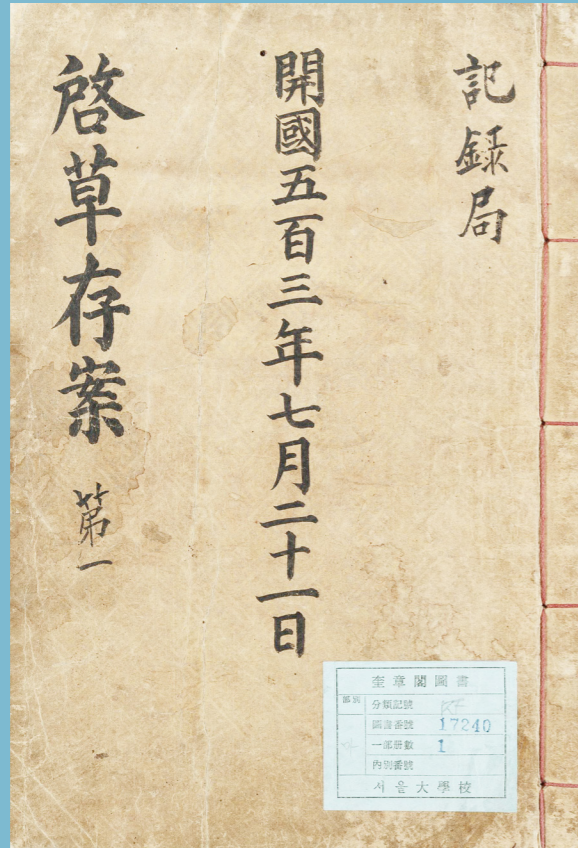 記録局
開國五百三年七月二十一日
啓草存案 第一
奎章閣圖書
部別
分類記號
圖書番號 17240
一部冊數 1
內別番號
서울大學校